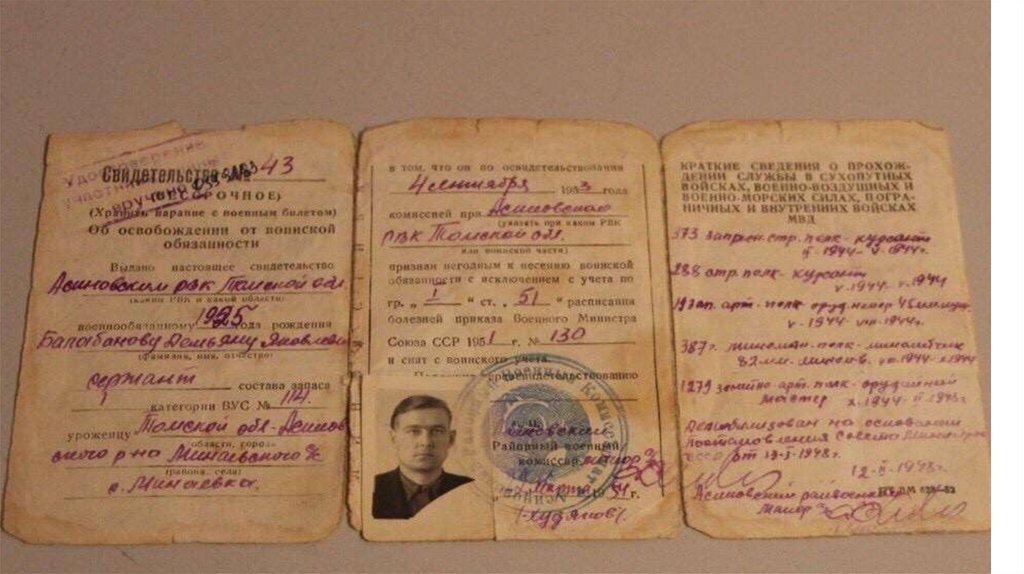 Удостоверение
участника
вручено
Свидетельство № 43
(БЕССРОЧНОЕ)
(Хранить наравне с военным билетом)
Об освобождении от воинской
обязанности
Выдано настоящее свидетельство
Асиновским рвк Томской обл.
(каким РВК и какой области)
военнообязанному 1925 года рождения
Балабанову Демьяну Яковлевичу
(фамилия, имя, отчество)
сержант состава запаса
1 категории ВУС № 114
уроженцу Томской обл. Асинов
(области, города,
ского р-на Минаевского с/с
района, села)
с. Минаевка.
в том, что он по освидетельствовании
4 сентября 1953 года
комиссией при Асиновском
(указать при каком РВК
РВК Томской обл.
или воинской части)
признан негодным к несению воинской
обязанности с исключением с учета по
гр. „ I “ ст. „ 51 “ расписания
болезней приказа Военного Министра
Союза ССР 1951 г. № 130
и снят с воинского учета.
освидетельствованию
Асиновский
Районный военный
комиссар майор
„ Марта 1954 г.
(Худянов).
КРАТКИЕ СВЕДЕНИЯ О ПРОХОЖ-
ДЕНИИ СЛУЖБЫ В СУХОПУТНЫХ
ВОЙСКАХ, ВОЕННО-ВОЗДУШНЫХ И
ВОЕННО-МОРСКИХ СИЛАХ, ПОГРА-
НИЧНЫХ И ВНУТРЕННИХ ВОЙСКАХ
МВД
573 стр. полк - курсант
II-1944 - V-1944г.
288 стр. полк - курсант
V-1944 - V-1944
арт. полк
V-1944 VIII-1944г.
387 г. полк
82 мм. VIII-1944 X-1944
1279 зенитно-арт. полк - орудийный
мастер X-1944
Демобилизован на основании
постановления Совета Министров
СССР от
12-II-1948г.
Асиновский райвоенком
майор